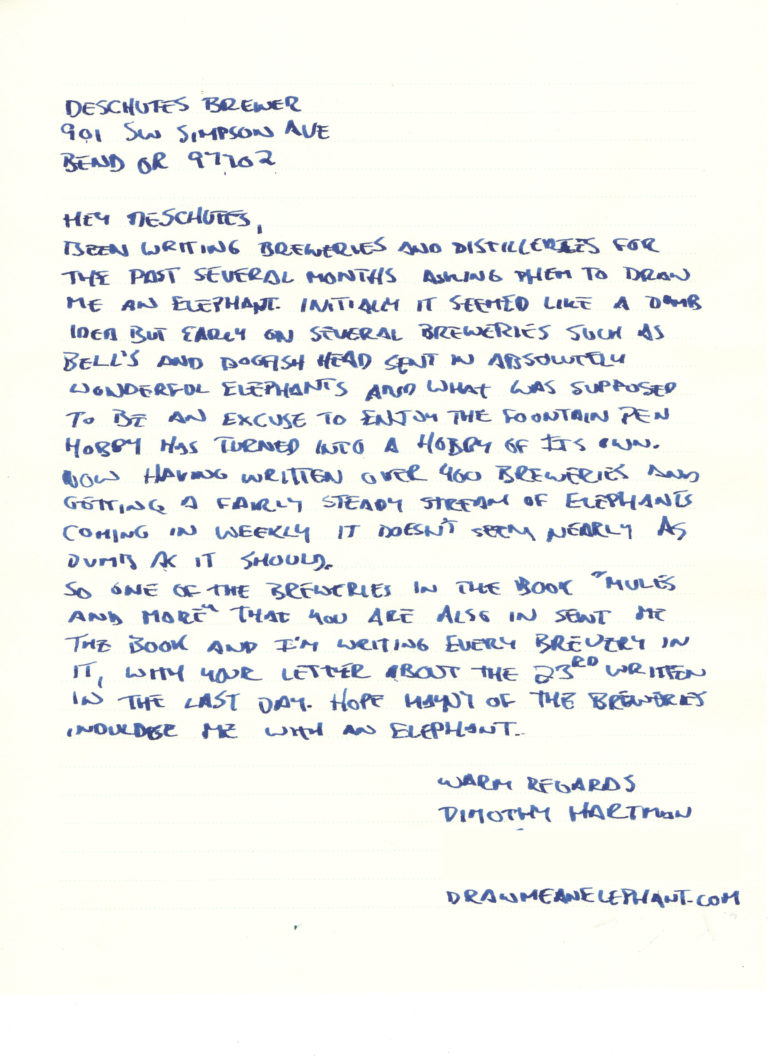 DESCHUTES BREWER
901 SW SIMPSON AVE
BEND OR 97702
HEY DESCHUTES,
BEEN WRITING BREWERIES AND DISTILLERIES FOR
THE PAST SEVERAL MONTHS ASKING THEM TO DRAW
ME AN ELEPHANT. INITIALLY IT SEEMED LIKE A DUMB
IDEA BUT EARLY ON SEVERAL BREWERIES SUCH AS
BELL'S AND DOGFISH HEAD SENT IN ABSOLUTELY
WONDERFUL ELEPHANTS AND WHAT WAS SUPPOSED
TO BE AN EXCUSE TO ENJOY THE FOUNTAIN PEN
HOBBY HAS TURNED INTO A HOBBY OF ITS OWN.
NOW HAVING WRITTEN OVER 400 BREWERIES AND
GETTING A FAIRLY STEADY STREAM OF ELEPHANTS
COMING IN WEEKLY IT DOESN'T SEEM NEARLY AS
DUMB AS IT SHOULD.
SO ONE OF THE BREWERIES IN THE BOOK "MULES
AND MORE" THAT YOU ARE ALSO IN SENT ME
THE BOOK AND I'M WRITING EVERY BREWERY IN
IT, WITH YOUR LETTER ABOUT THE 23RD WRITTEN
IN THE LAST DAY. HOPE OF THE BREWERIES
INDULDGE ME WITH AN ELEPHANT.
WARM REGARDS
DIMOTHY HARTMAN
DRAWMEANELEPHANT.COM